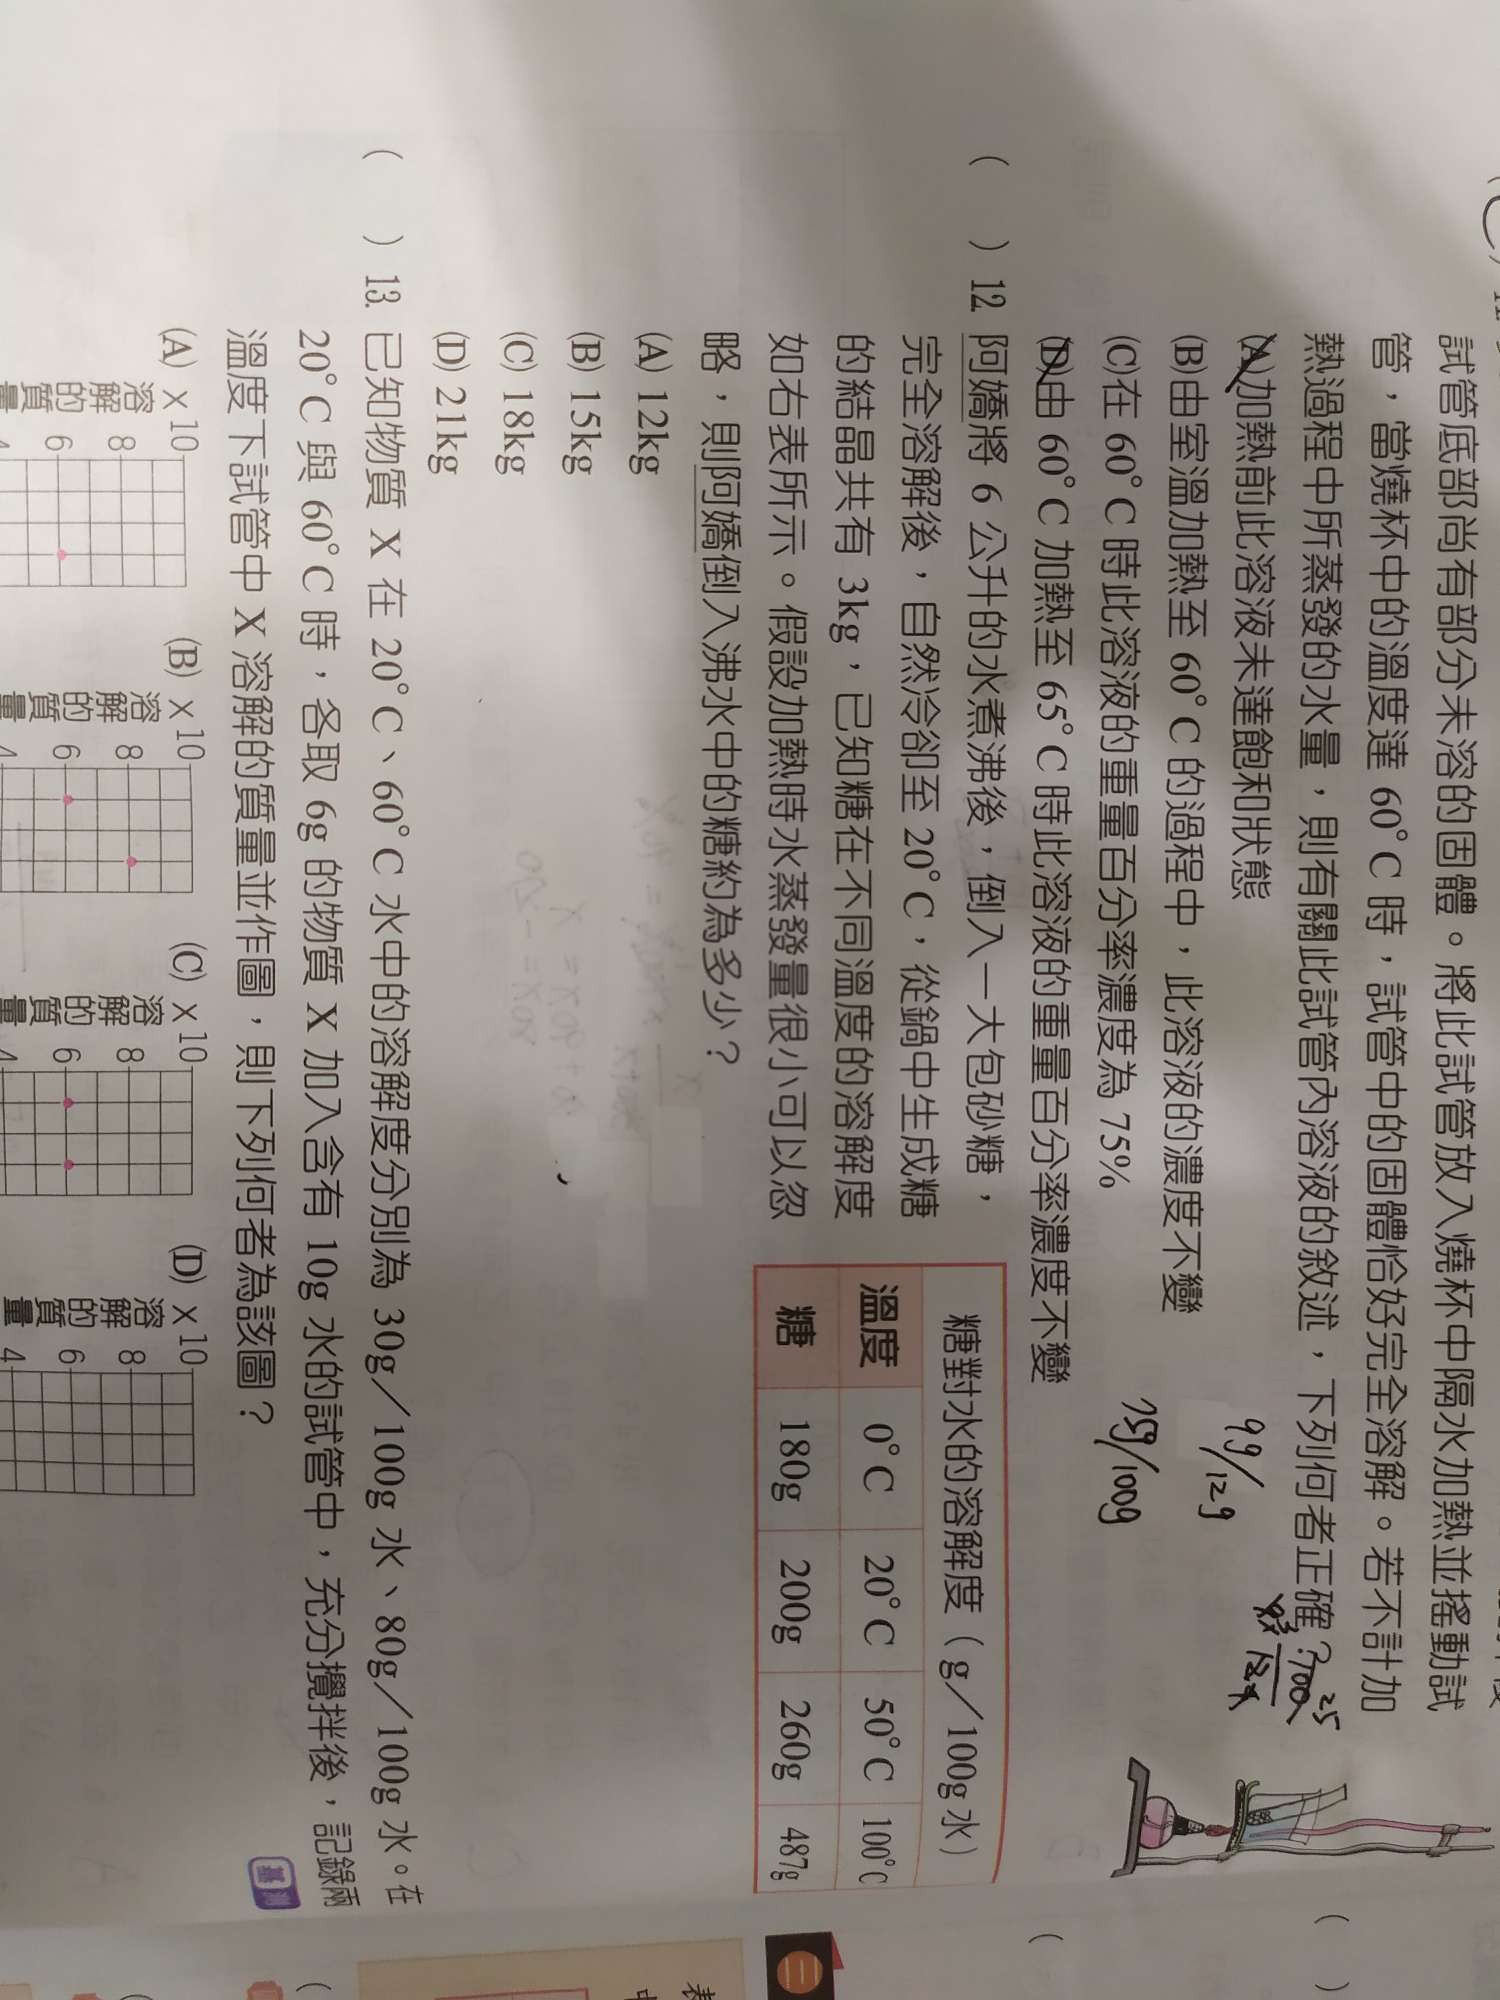 試管底部尚有部分未溶的固體。將此試管放入燒杯中隔水加熱並搖動試
管，當燒杯中的溫度達 60°C 時，試管中的固體恰好完全溶解。若不計加
熱過程中所蒸發的水量，則有關此試管內溶液的敘述，下列何者正確？
(A)加熱前此溶液未達飽和狀態
(B)由室溫加熱至 60°C 的過程中，此溶液的濃度不變
(C)在 60°C 時此溶液的重量百分率濃度為 75%
(D)由 60°C 加熱至 65°C 時此溶液的重量百分率濃度不變
9g/12g
75g/100g
25
( ) 12. 阿嬌將 6 公升的水煮沸後，倒入一大包砂糖，
完全溶解後，自然冷卻至 20°C，從鍋中生成糖
的結晶共有 3kg，已知糖在不同溫度的溶解度
如右表所示。假設加熱時水蒸發量很小可以忽
略，則阿嬌倒入沸水中的糖約為多少？
(A) 12kg
(B) 15kg
(C) 18kg
(D) 21kg
糖對水的溶解度（g／100g 水）
溫度 0°C 20°C 50°C 100°C
糖 180g 200g 260g 487g
( ) 13. 已知物質 X 在 20°C、60°C 水中的溶解度分別為 30g／100g 水、80g／100g 水。在
20°C 與 60°C 時，各取 6g 的物質 X 加入含有 10g 水的試管中，充分攪拌後，記錄兩
溫度下試管中 X 溶解的質量並作圖，則下列何者為該圖？
基測
(A) X 溶解的質量 10 8 6 4
(B) X 溶解的質量 10 8 6 4
(C) X 溶解的質量 10 8 6 4
(D) X 溶解的質量 10 8 6 4
二